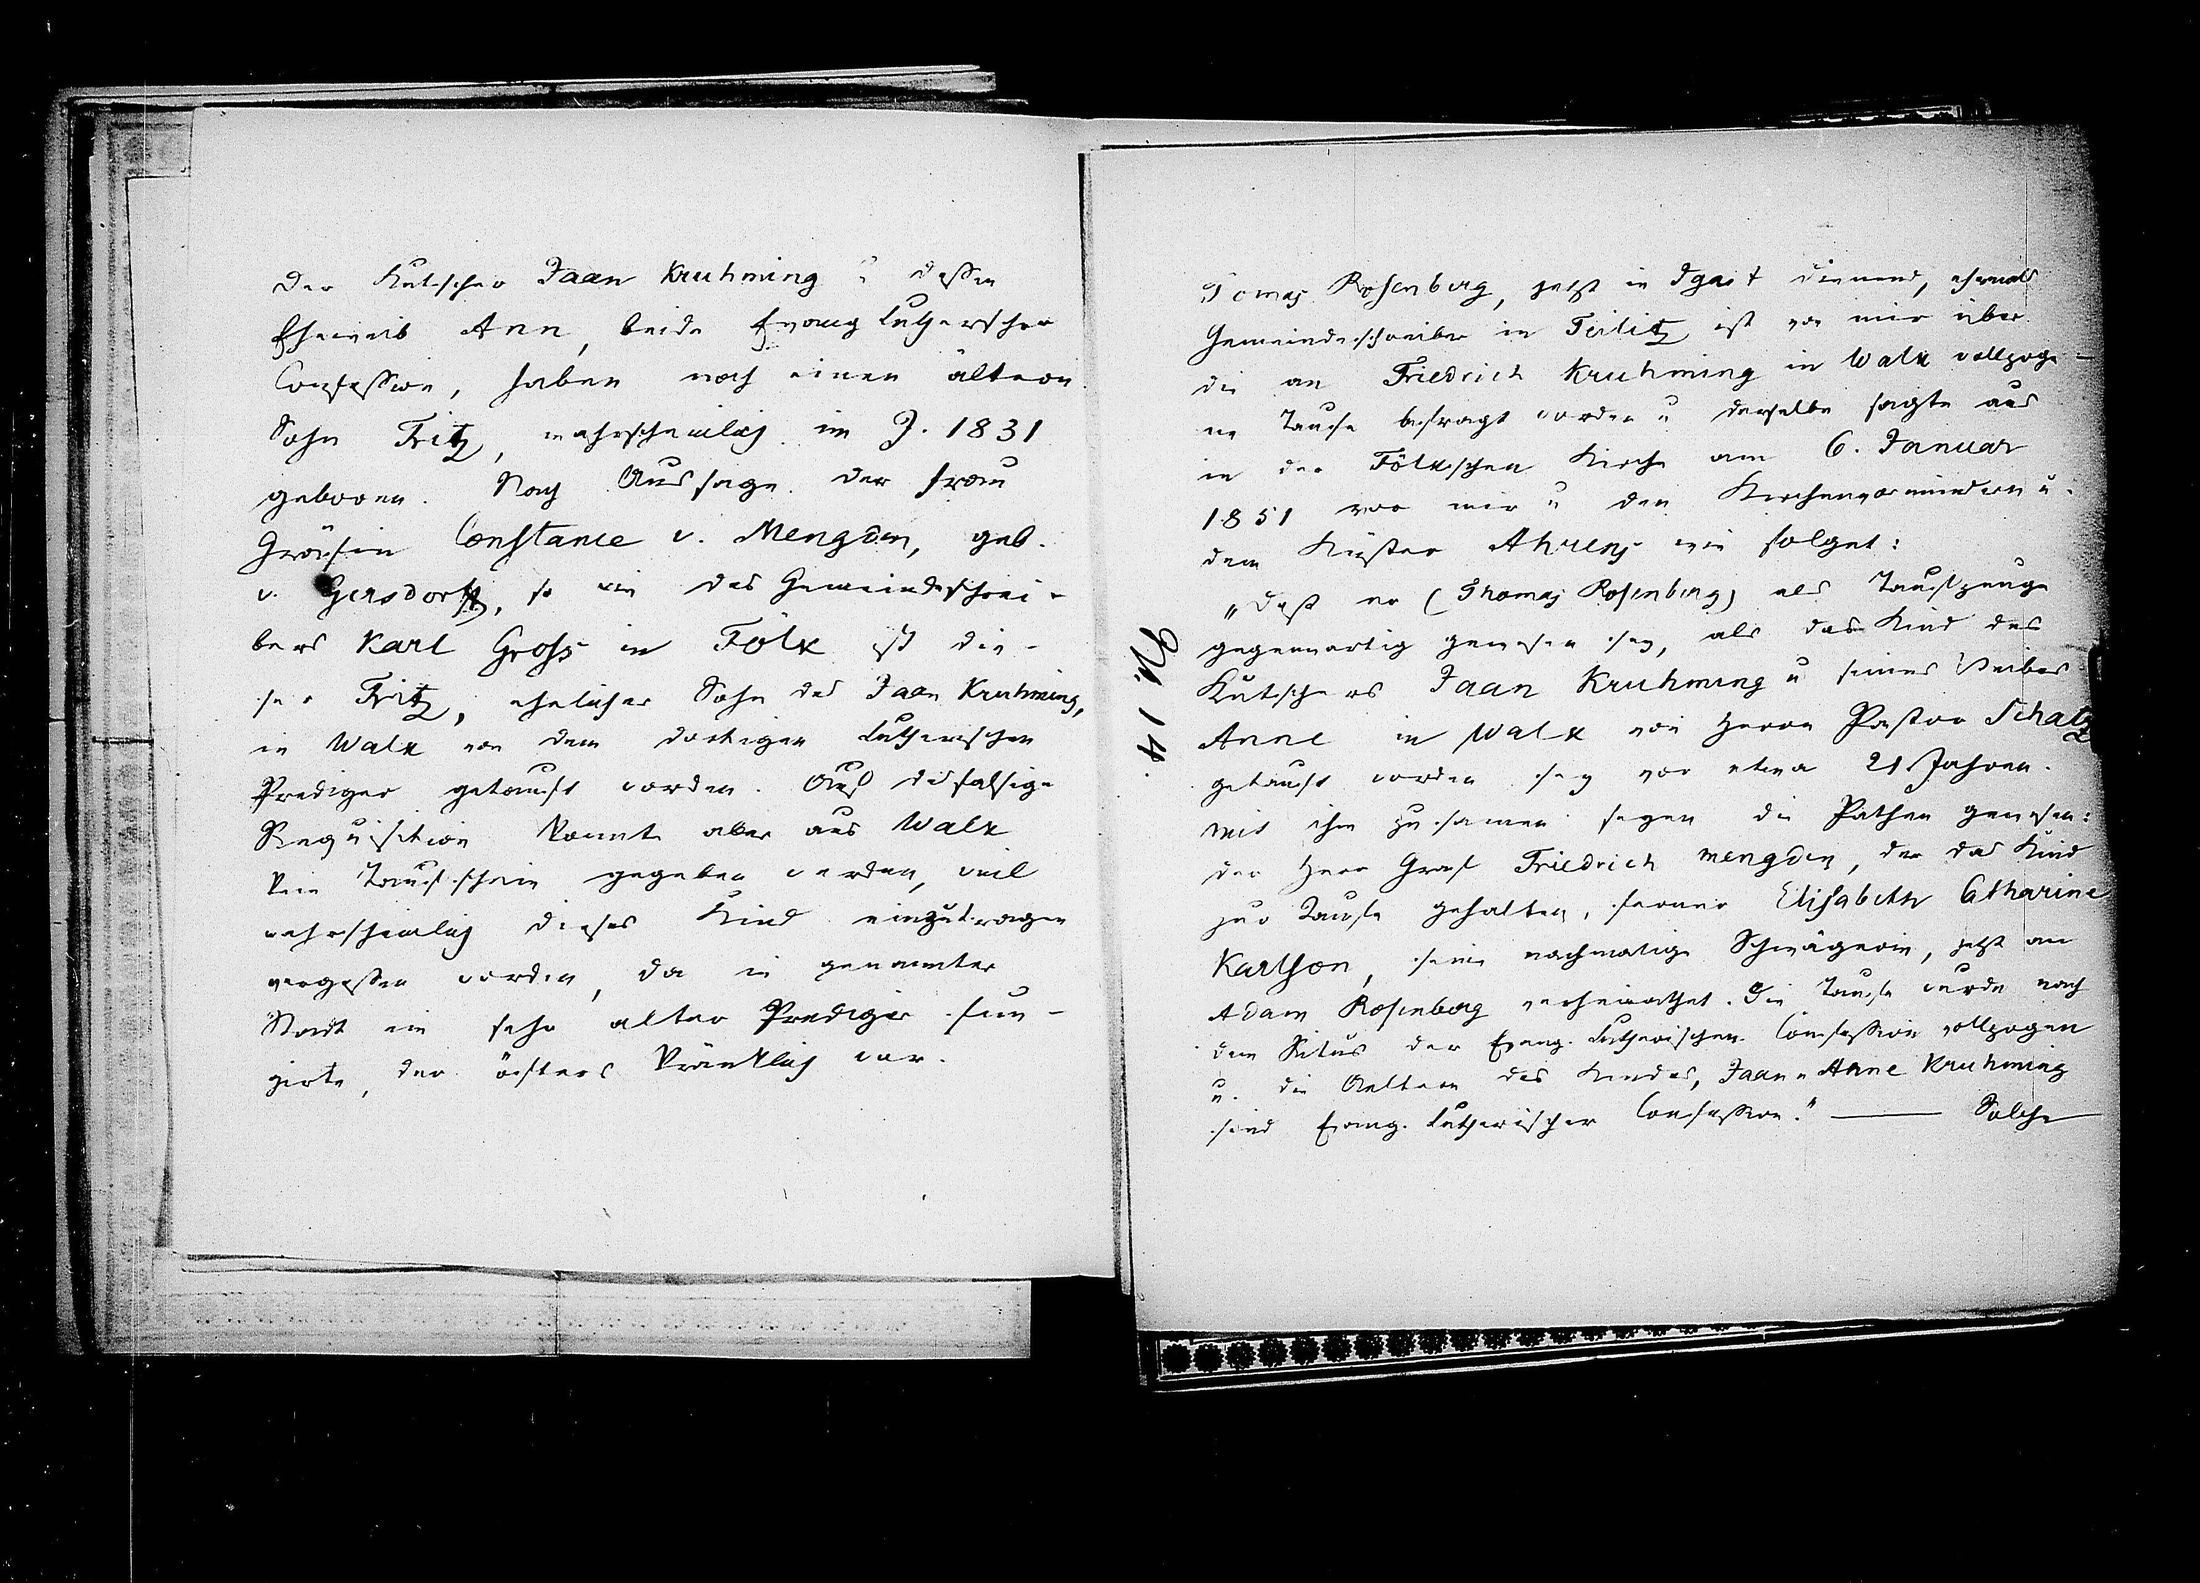 Der Kutscher Jaan Kruhming u dessen
Eheweib Ann, beide Evang Lutherscher
Confession, haben noch einen ältern
Sohn Fritz, wahrscheinlich im J. 1831
geboren. Nach Aussage der Frau
Gräfin Constance v. Mengden, geb.
v. Gersdorff, so wie des Gemeindeschrei-
bers Karl Gross in Fölk ist die-
ser Fritz, ehelicher Sohn des Jaan Kruhming,
in Walk von dem dortigen Lutherischen
Prediger getauft worden. Auf desfalsige
Requisition konnte aber aus Walk
kein Taufschein gegeben werden, weil
wahrscheinlich dieses Kind einzutragen
vergessen worden, da in genannter
Stadt ein sehr alter Prediger fun-
girte, der öfters kränklich war.
Tomas Rosenberg, jetzt in Igast dienend, ehemals
Gemeindeschreiber in Teilitz ist von mir über
die an Friedrich Kruhming in Walk vollzoge-
ne Taufe befragt worden u derselbe sagte aus
in der Fölkschen Kirche am 6. Januar
1851 vor mir u den Kirchenvormündern u.
dem Küster Ahrens wie folget:
"Daß er (Thomas Rosenberg) als Taufzeuge
gegenwärtig gewesen sey, als das Kind des
Kutschers Jaan Kruhming u seines Weibes
Anne in Walk von Herrn Pastor Schatz
getauft worden sey vor etwa 21 Jahren.
Mit ihm zusamen seyen die Pathen gewesen:
der Herr Graf Friedrich Mengden, der das Kind
zur Taufe gehalten, ferner Elisabeth Catharine
Karlson, seine nachmalige Schwägerin, jetzt an
Adam Rosenberg verheirathet. Die Taufe wurde nach
dem Ritus der Evang. Lutherischen Confession vollzogen
u. die Aeltern des Kindes, Jaan u Anne Kruhming
sind Evang. Lutherischer Confession." — Solche